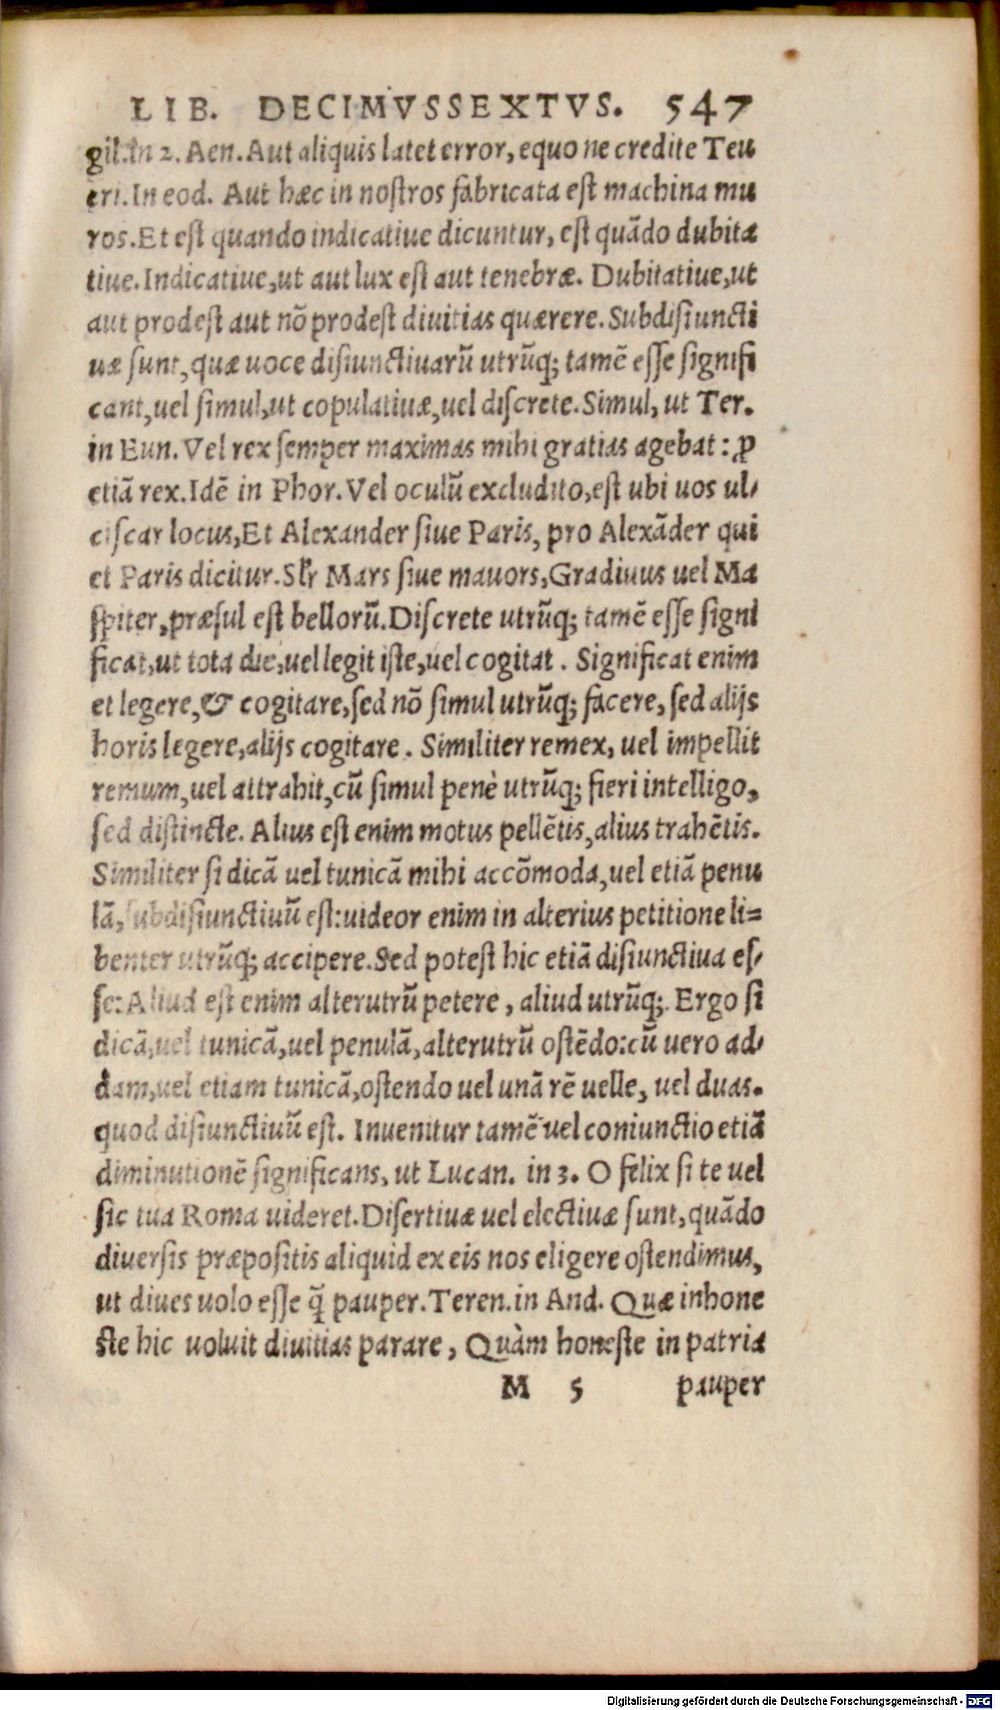 LIB. DECIMVSSEXTVS. 547
gil.In 2. Aen. Aut aliquis latet error, equo ne credite Teu
cri. In eod. Aut hæc in nostros fabricata est machina mu
ros. Et est quando indicatiue dicuntur, est quādo dubita
tiue. Indicatiue, ut aut lux est aut tenebræ. Dubitatiue, ut
aut prodest aut nō prodest diuitias quærere. Subdisiuncti
uæ sunt, quæ uoce disiunctiuarū utrūq; tamē esse signifi
cant, uel simul, ut copulatiuæ, uel discrete. Simul, ut Ter.
in Eun. Vel rex semper maximas mihi gratias agebat: ꝓ
etiā rex. Idē in Phor. Vel oculū excludito, est ubi uos ul-
ciscar locus, Et Alexander siue Paris, pro Alexāder qui
et Paris dicitur. Sĺr Mars siue mauors, Gradiuus uel Ma
spiter, præsul est bellorū. Discrete utrūq; tamē esse signi
ficat, ut tota die, uel legit iste, uel cogitat. Significat enim
et legere, & cogitare, sed nō simul utrūq; facere, sed alijs
horis legere, alijs cogitare. Similiter remex, uel impellit
remum, uel attrahit, cū simul penè utrūq; fieri intelligo,
sed distincte. Alius est enim motus pellētis, alius trahētis.
Similiter si dicā uel tunicā mihi accōmoda, uel etiā penu
lā, subdisiunctiuū est: uideor enim in alterius petitione li=
benter utrūq; accipere. Sed potest hic etiā disiunctiua es-
se: Aliud est enim alterutrū petere, aliud utrūq;. Ergo si
dicā, uel tunicā, uel penulā, alterutrū ostēdo: cū uero ad-
dam, uel etiam tunicā, ostendo uel unā rē uelle, uel duas.
quod disiunctiuū est. Inuenitur tamē uel coniunctio etiā
diminutionē significans, ut Lucan. in 3. O felix si te uel
sic tua Roma uideret. Disertiuæ uel electiuæ sunt, quādo
diuersis præpositis aliquid ex eis nos eligere ostendimus,
ut diues uolo esse q̄ pauper. Teren. in And. Quæ inhone
ste hic uoluit diuitias parare, Quàm honeste in patria
M 5 pauper
Digitalisierung gefördert durch die Deutsche Forschungsgemeinschaft - DFG